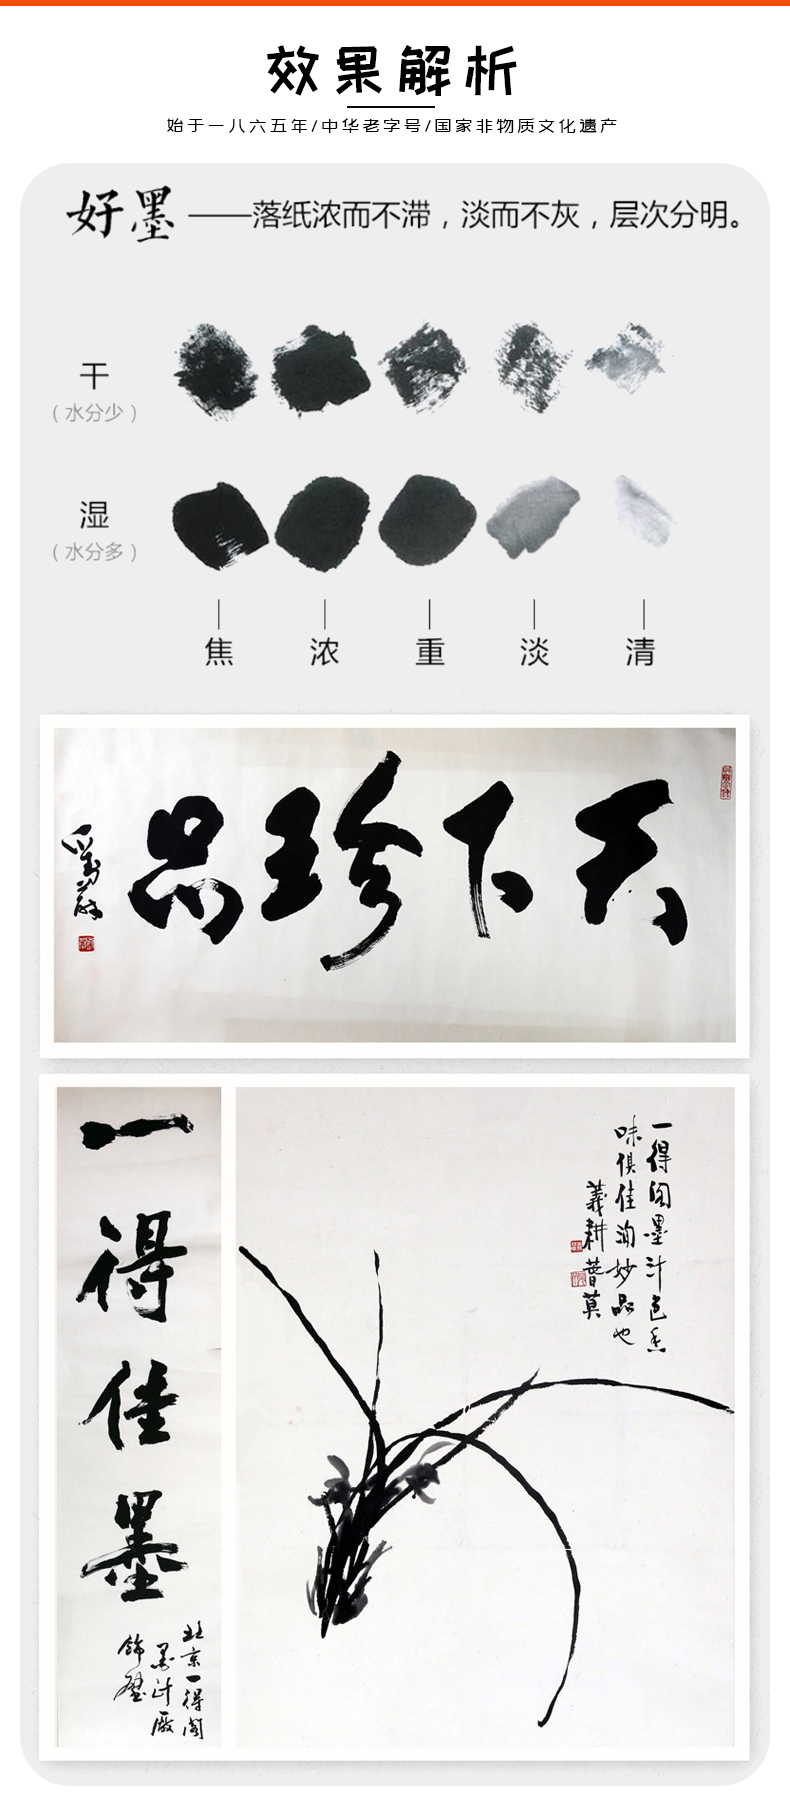 效果解析
始于一八六五年/中华老字号/国家非物质文化遗产
好墨——落纸浓而不滞，淡而不灰，层次分明。
干
（水分少）
湿
（水分多）
焦 浓 重 淡 清
天下珍品
一得佳墨
北京一得阁
墨汁厰
饰壁
一得阁墨汁色香
味俱佳洵妙品也